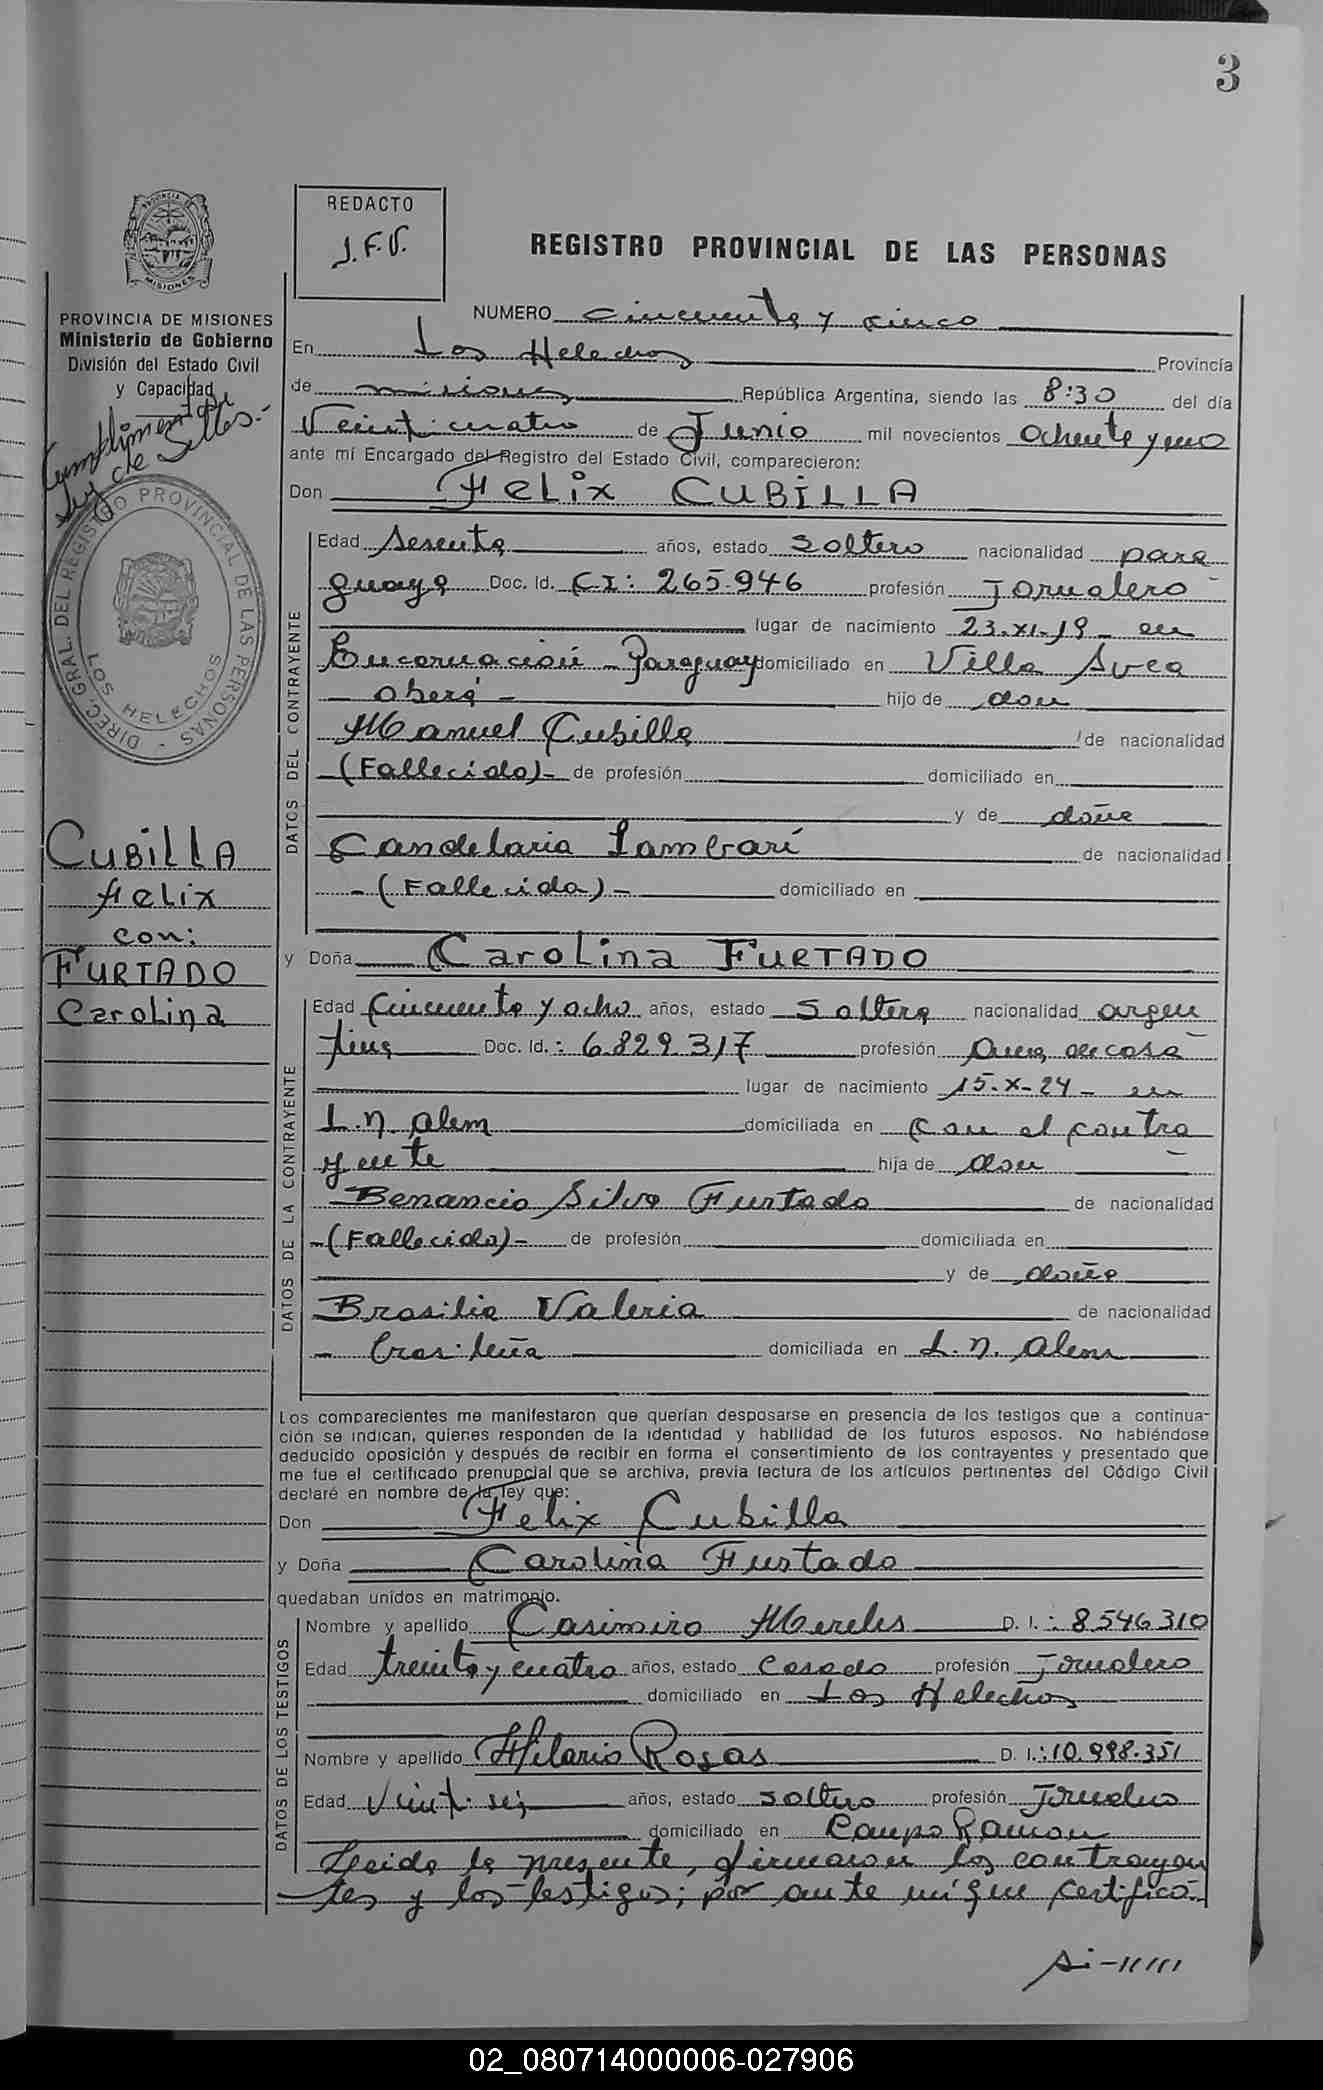 3
PROVINCIA DE
MISIONES
REDACTO
J.F.V.
REGISTRO PROVINCIAL DE LAS PERSONAS
PROVINCIA DE MISIONES
Ministerio de Gobierno
División del Estado Civil
y Capacidad
Cumplimentada
Ley de Sellos.-
DIREC. GRAL. DEL REGISTRO PROVINCIAL DE LAS PERSONAS
LOS HELECHOS
CUBILLA
Felix
con:
FURTADO
Carolina
NUMERO cincuenta y cinco
En Los Helechos Provincia
de misiones República Argentina, siendo las 8:30 del día
Veinticuatro de Junio mil novecientos ochenta y uno
ante mí Encargado del Registro del Estado Civil, comparecieron:
Don FELIX CUBILLA
DATOS DEL CONTRAYENTE
Edad Sesenta años, estado soltero nacionalidad para
guaya Doc. Id. C.I: 265.946 profesión Jornalero
lugar de nacimiento 23-XI-19- en
Encarnación-Paraguay domiciliado en Villa Svea
- oberá - hijo de don
Manuel Cubilla de nacionalidad
-(Fallecido)- de profesión domiciliado en
y de doña
Candelaria Lambarí de nacionalidad
-(Fallecida)- domiciliado en
y Doña Carolina FURTADO
DATOS DE LA CONTRAYENTE
Edad Cincuenta y ocho años, estado Soltera nacionalidad argen
tina Doc. Id.: 6.829.317 profesión Ama de casa
lugar de nacimiento 15-X-24- en
L.N. Alem domiciliada en con el contra
yente hija de don
Benancio Silva Furtado de nacionalidad
-(Fallecido)- de profesión domiciliada en
y de doña
Brasilia Valeria de nacionalidad
- brasileña domiciliada en L.N. Alem
Los comparecientes me manifestaron que querían desposarse en presencia de los testigos que a continua-
ción se indican, quienes responden de la identidad y habilidad de los futuros esposos. No habiéndose
deducido oposición y después de recibir en forma el consentimiento de los contrayentes y presentado que
me fue el certificado prenupcial que se archiva, previa lectura de los artículos pertinentes del Código Civil
declaré en nombre de la ley que:
Don Felix Cubilla
y Doña Carolina Furtado
quedaban unidos en matrimonio.
DATOS DE LOS TESTIGOS
Nombre y apellido Casimiro Mereles D. I.: 8546310
Edad treinta y cuatro años, estado Casado profesión Jornalero
domiciliado en Los Helechos
Nombre y apellido Hilario Rosas D. I.: 10.998.351
Edad Veintiseis años, estado soltero profesión Jornalero
domiciliado en Campo Ramon
Leida la presente, firmaron los contrayen
tes y los testigos; por ante mí que certifico.
02_080714000006-027906